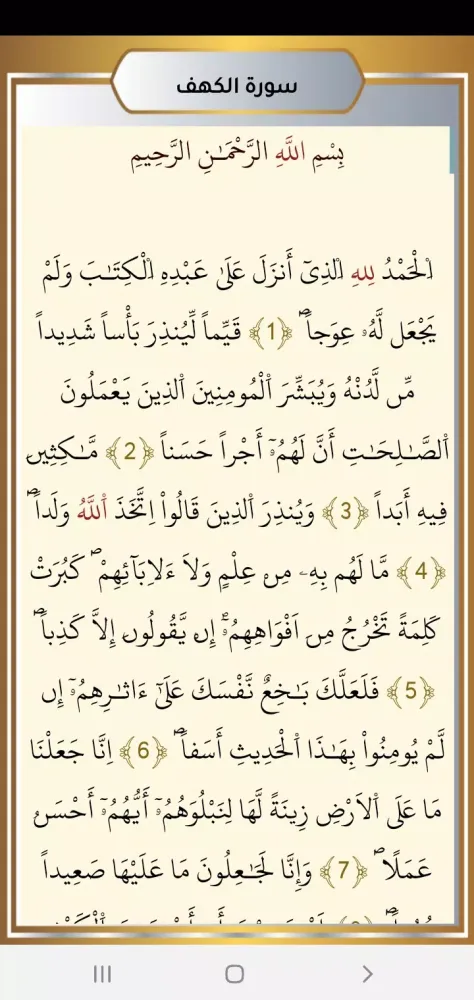 سورة الكهف
بِسْمِ اللَّهِ الرَّحْمَـٰنِ الرَّحِيمِ
اِ۬لْحَمْدُ لِلهِ اِ۬لذِےٓ أَنزَلَ عَلَىٰ عَبْدِهِ اِ۬لْكِتَـٰبَ وَلَمْ
يَجْعَل لَّهُۥ عِوَجاًۖ ﴿1﴾ قَيِّماً لِّيُنذِرَ بَأْساً شَدِيداً
مِّن لَّدُنْهُ وَيُبَشِّرَ اَ۬لْمُومِنِينَ اَ۬لذِينَ يَعْمَلُونَ
اَ۬لصَّـٰلِحَـٰتِ أَنَّ لَهُمُۥٓ أَجْراً حَسَناً ﴿2﴾ مَّـٰكِثِينَ
فِيهِ أَبَداً ﴿3﴾ وَيُنذِرَ اَ۬لذِينَ قَالُواْ اُ۪تَّخَذَ اَ۬للَّهُ وَلَداًۖ
﴿4﴾ مَّا لَهُم بِهِۦ مِنْ عِلْمٍ وَلَا ءَلِابَآئِهِمْۖ كَبُرَتْ
كَلِمَةً تَخْرُجُ مِنَ اَفْوَاهِهِمُۥٓۖ إِنْ يَّقُولُونَ إِلَّا كَذِباًۖ
﴿5﴾ فَلَعَلَّكَ بَـٰخِعٌ نَّفْسَكَ عَلَىٰٓ ءَاثـٰرِهِمُۥٓ إِن
لَّمْ يُومِنُواْ بِهَـٰذَا اَ۬لْحَدِيثِ أَسَفاًۖ ﴿6﴾ اِنَّا جَعَلْنَا
مَا عَلَى اَ۬لَارْضِ زِينَةً لَّهَا لِنَبْلُوَهُمُۥٓ أَيُّهُمُۥٓ أَحْسَنُ
عَمَلًاۖ ﴿7﴾ وَإِنَّا لَجَـٰعِلُونَ مَا عَلَيْهَا صَعِيداً